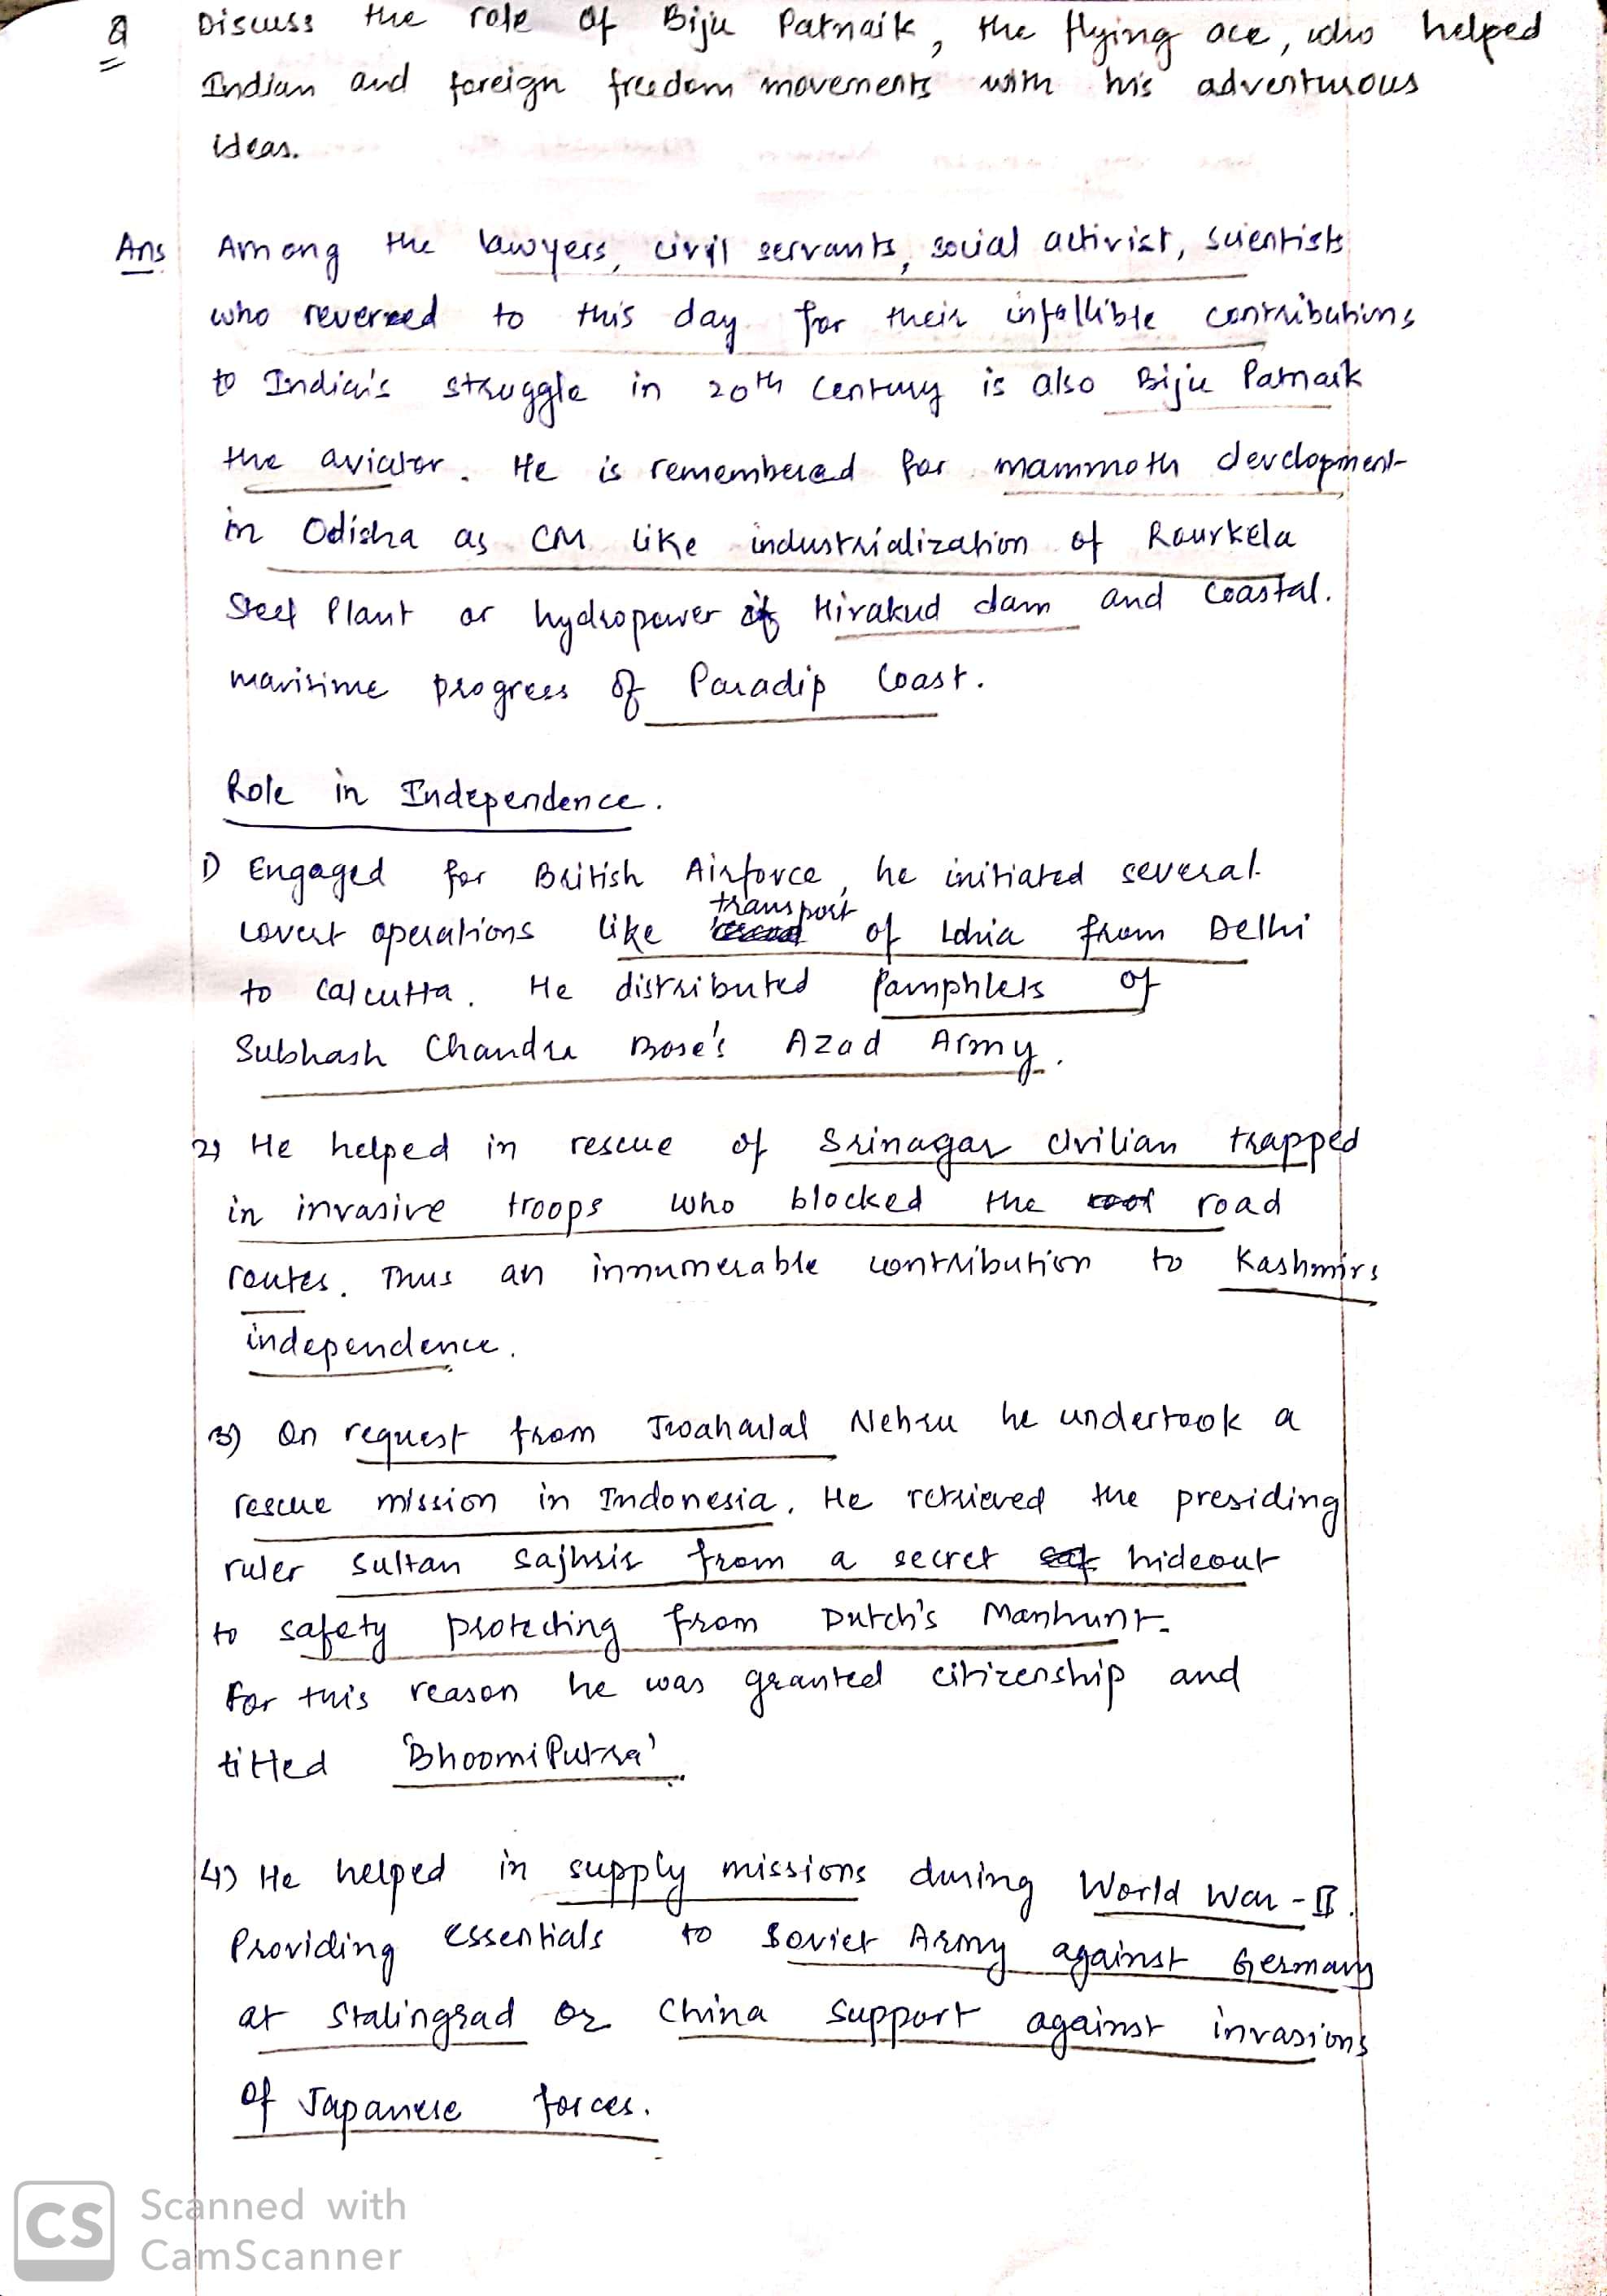 Q Discuss the role of Biju Patnaik, the flying ace, who helped
Indian and foreign freedom movements with his adventurous
ideas.
Ans Among the lawyers, civil servants, social activist, scientists
who revered to this day for their infallible contributions
to India's struggle in 20th Century is also Biju Patnaik
the aviator. He is remembered for mammoth development
in Odisha as CM like industrialization of Rourkela
Steel Plant or hydropower of Hirakud dam and coastal.
maritime progress of Paradip Coast.
Role in Independence.
1) Engaged for British Airforce, he initiated several
covert operations like transport of Lohia from Delhi
to Calcutta. He distributed Pamphlets of
Subhash Chandra Bose's Azad Army.
2) He helped in rescue of Srinagar civilian trapped
in invasive troops who blocked the road
routes. Thus an innumerable contribution to Kashmirs
independence.
3) On request from Jwaharlal Nehru he undertook a
rescue mission in Indonesia. He retrieved the presiding
ruler Sultan from a secret hideout
to safety protecting from Dutch's Manhunt.
For this reason he was granted citizenship and
titled 'BhoomiPutra'
4) He helped in supply missions during World War-II.
Providing essentials to Soviet Army against Germany
at Stalingrad or China support against invasions
of Japanese forces.
CS Scanned with
CamScanner